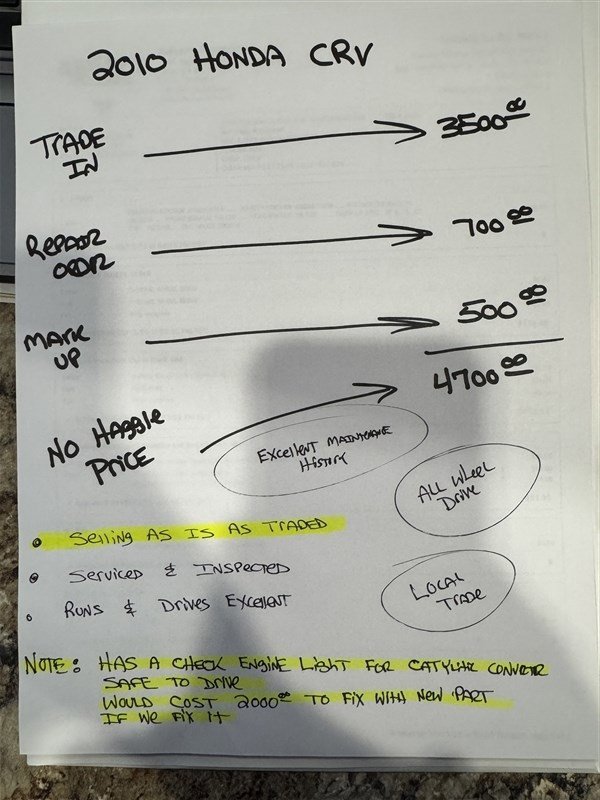 2010 HONDA CRV
TRADE IN 3500.00
REPAIR ORDER 700.00
MARK UP 500.00
4700.00
NO HAGGLE PRICE
EXCELLENT MAINTENANCE HISTORY
ALL WHEEL DRIVE
LOCAL TRADE
• SELLING AS IS AS TRADED
• SERVICED & INSPECTED
• RUNS & DRIVES EXCELLENT
NOTE: HAS A CHECK ENGINE LIGHT FOR CATYLITIC CONVERTER
SAFE TO DRIVE
WOULD COST 2000.00 TO FIX WITH NEW PART
IF WE FIX IT